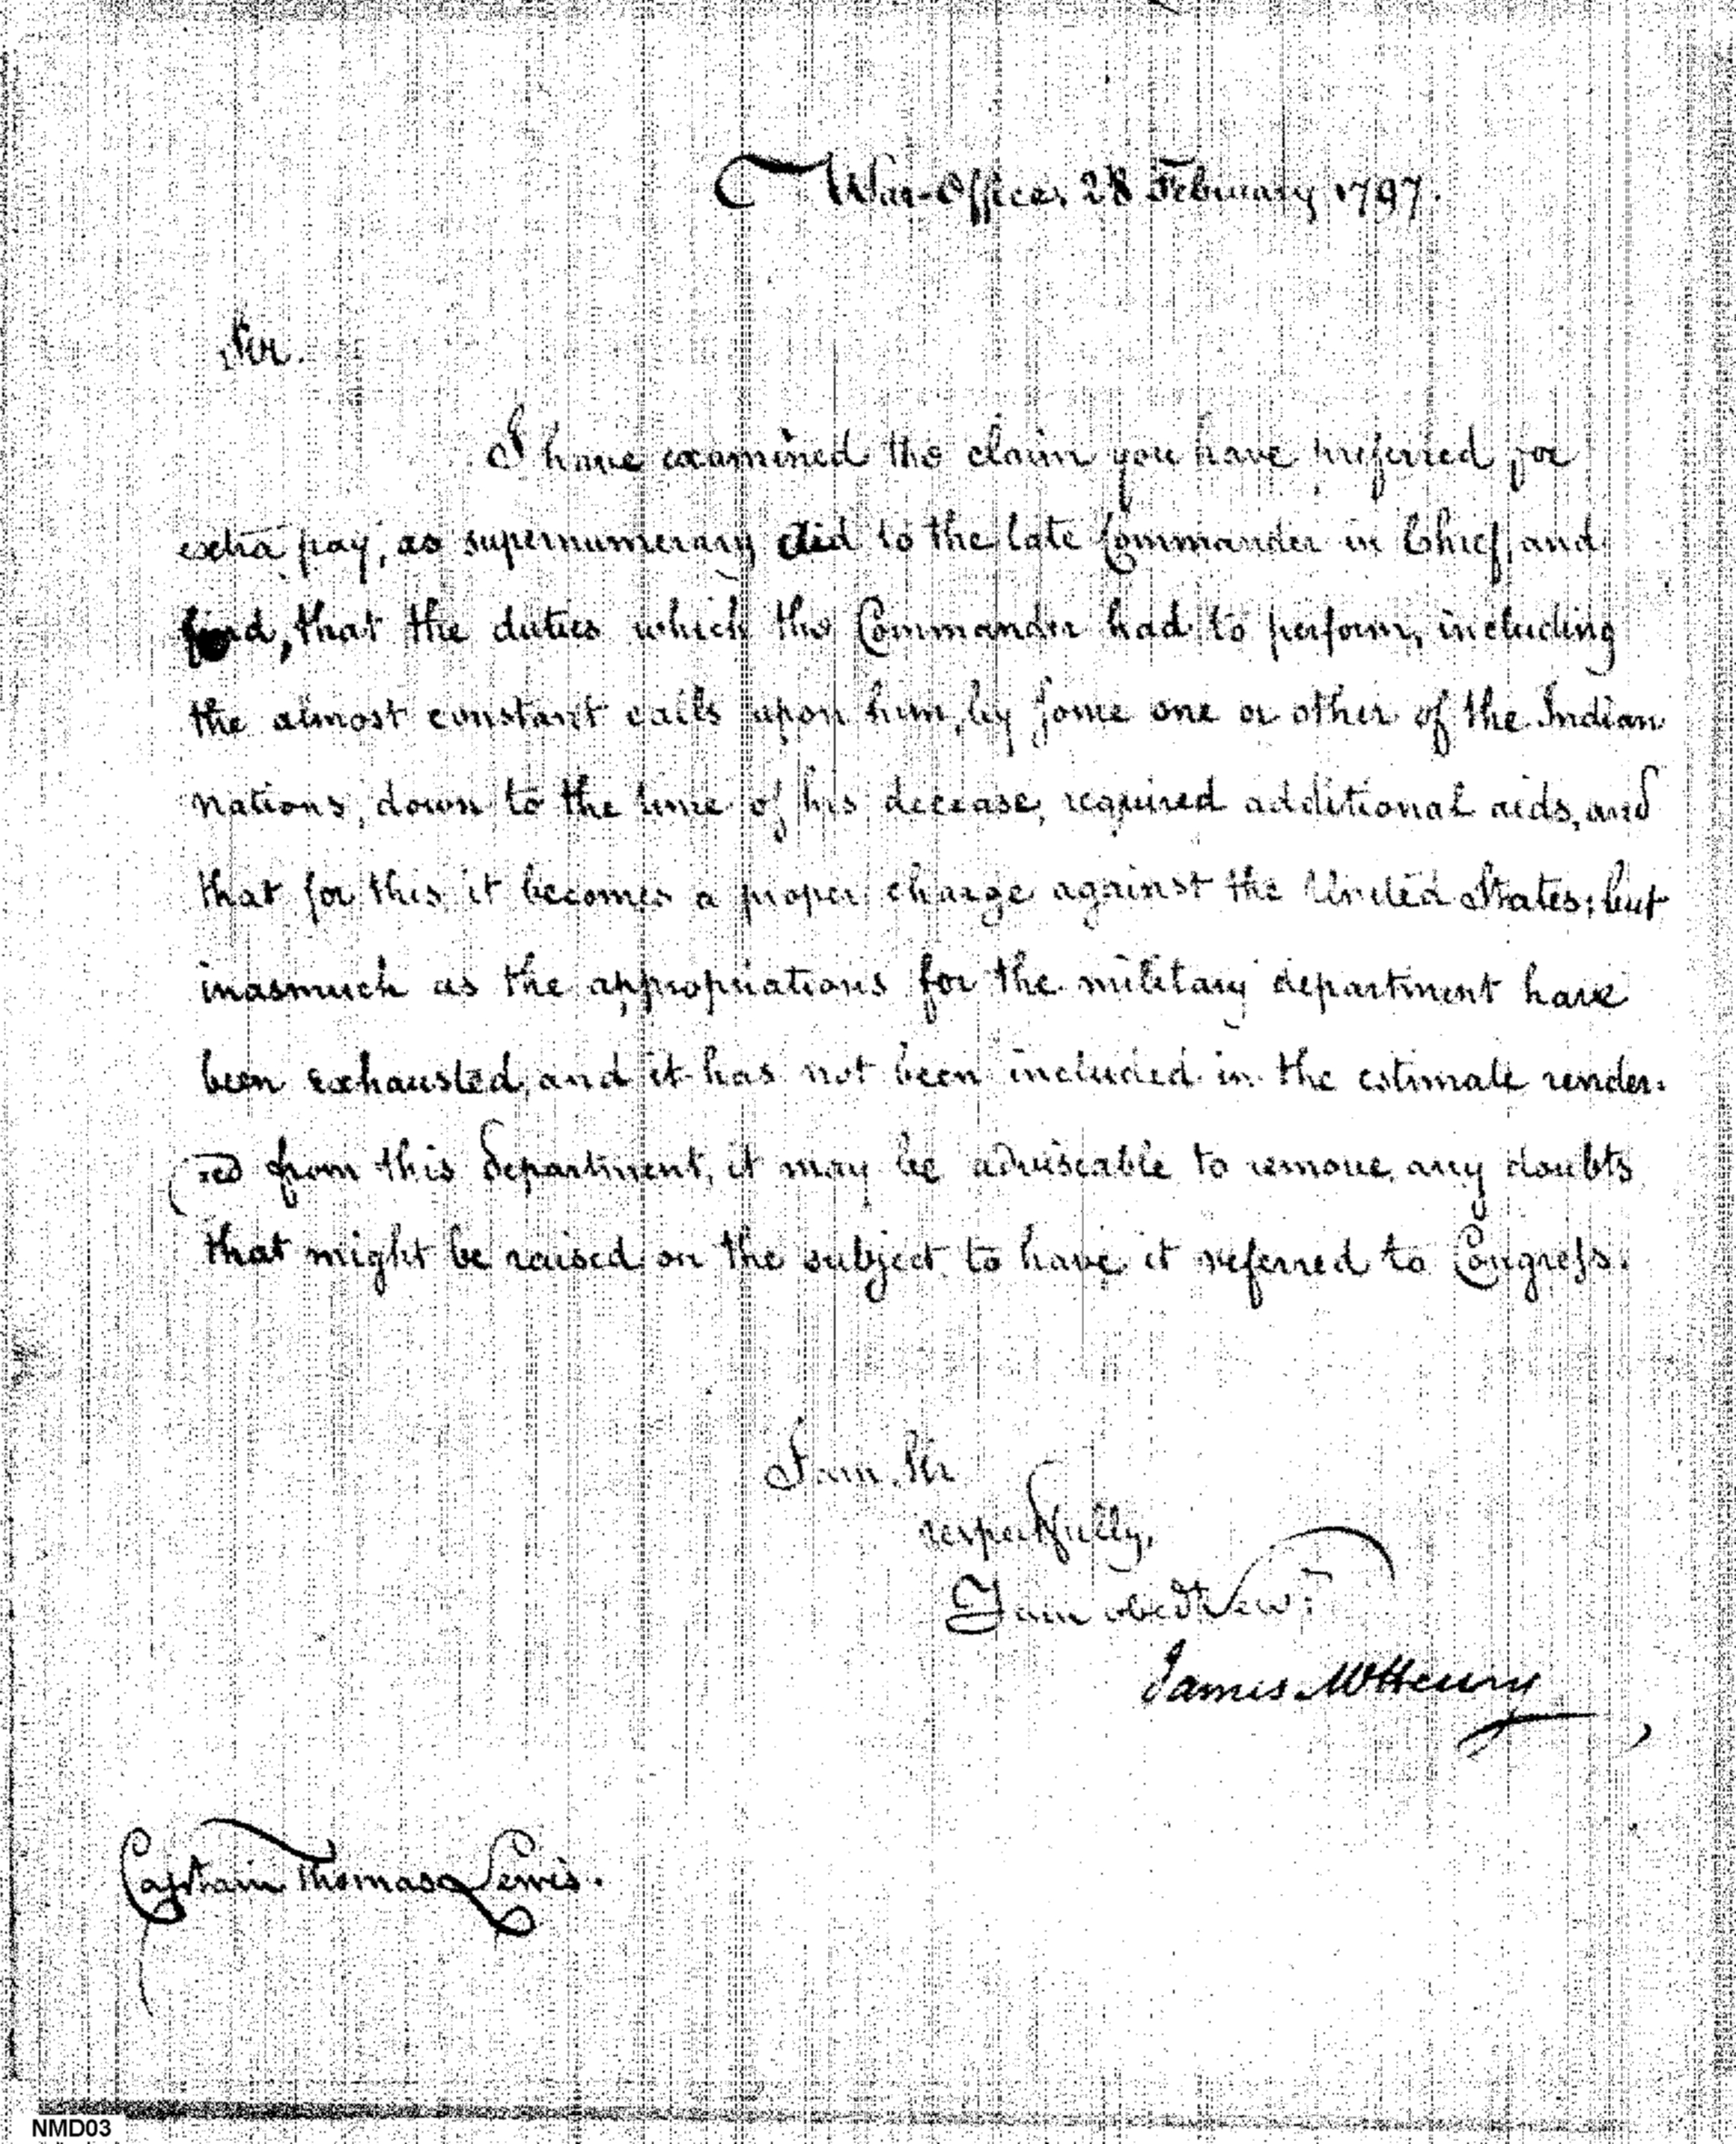 War-Office, 28 February 1797.
Sir.
I have examined the claim you have preferred for
extra pay, as supernumerary Aid to the late Commander in Chief, and
find, that the duties which the Commander had to perform, including
the almost constant calls upon him, by some one or other of the Indian
Nations, down to the time of his decease, required additional aids, and
that for this it becomes a proper charge against the United States; but
inasmuch as the appropriations for the military department have
been exhausted, and it has not been included in the estimate render-
-ed from this department, it may be adviseable to remove any doubts
that might be raised on the subject to have it referred to Congress.
I am, Sir
respectfully,
I am obedt Servt
James McHenry
Captain Thomas Lewis.
NMD03